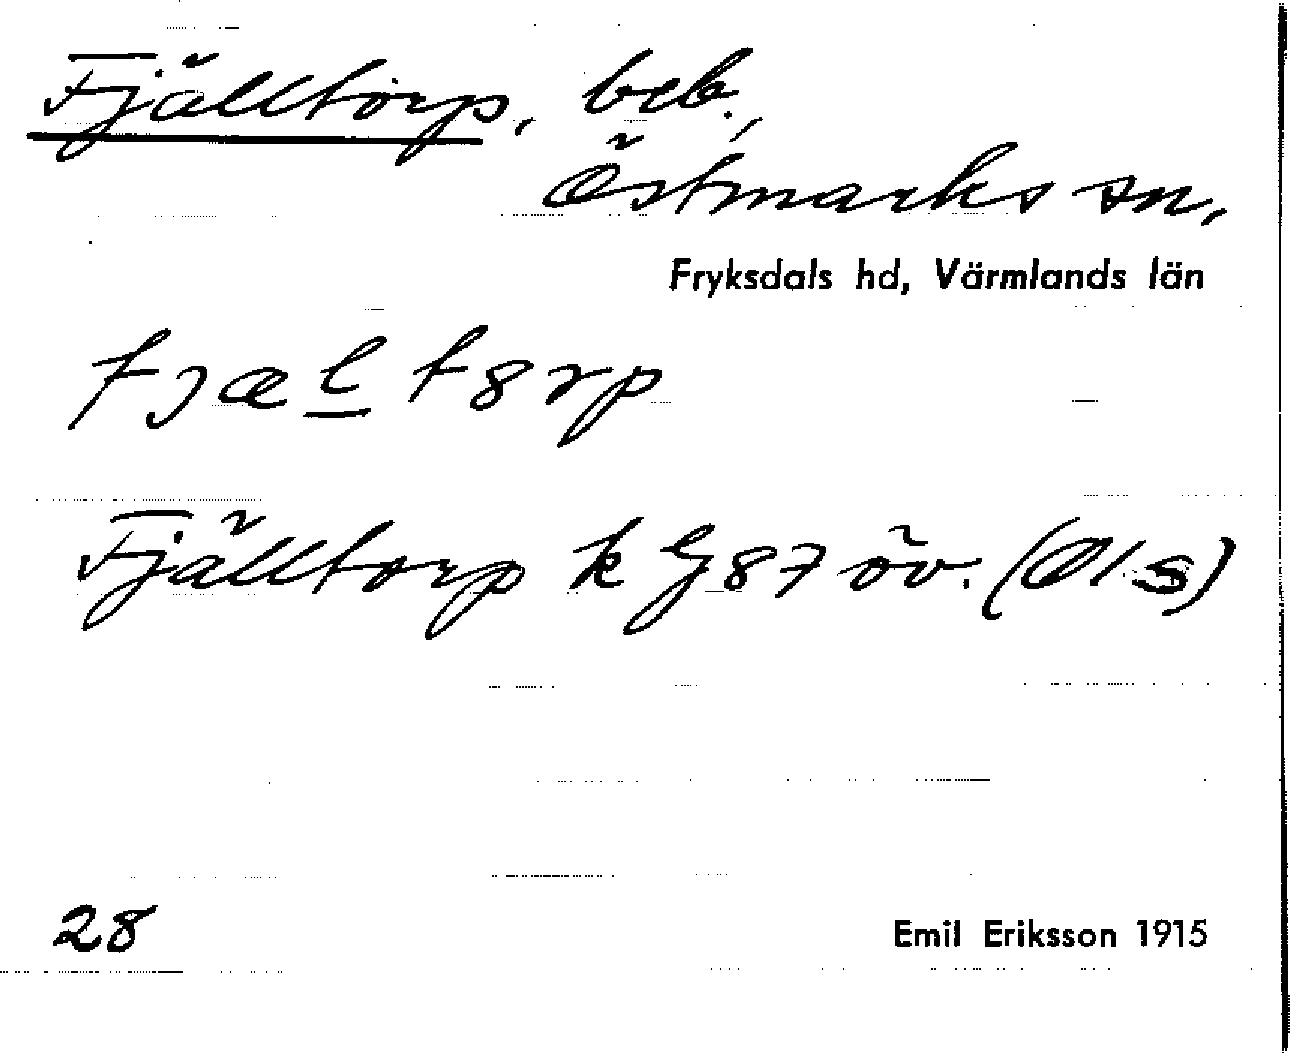 Fjälltorp, beb.,
Östmarks sn,
Fryksdals hd, Värmlands län
fjælt8rp
Fjälltorp k G87 öv. (Ols)
28
Emil Eriksson 1915